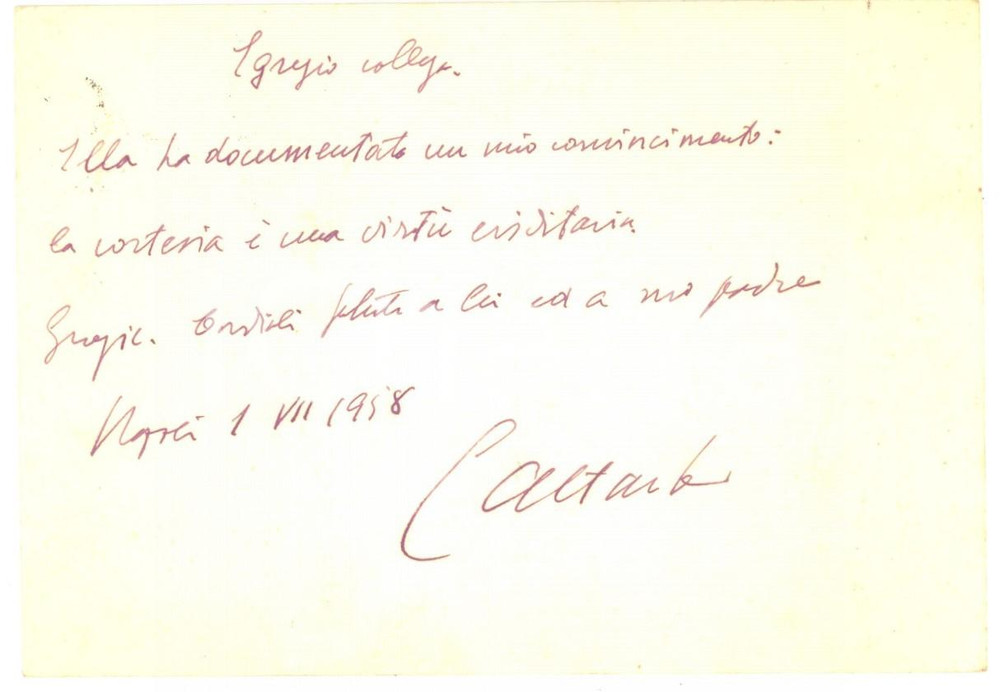 Egregio collega.
Ella ha documentato un mio convincimento:
la cortesia è una virtù ereditaria.
Grazie. Cordiali saluti a lei ed a suo padre
Napoli 1 VII 1958